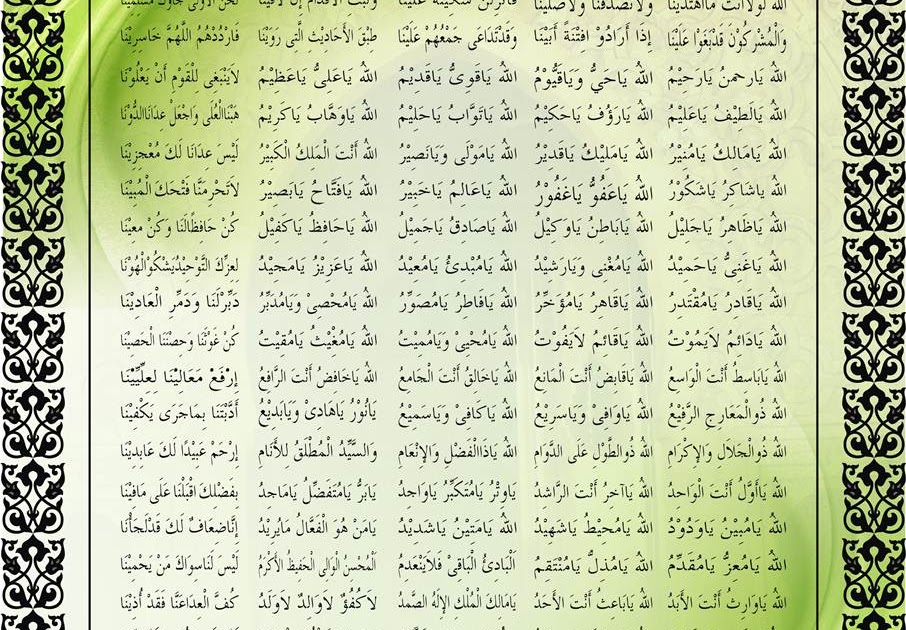 الله لولاانت مااهتدينا ولاتصدقنا ولاصلينا فانزلن سكينة علينا وثبت الاقدام إن لاقينا نحن الأولى جاؤك مسلمينا
وَالْمُشْرِكُوْنَ قَدْبَغَوْا عَلَيْنَا إِذَا أَرَادُوْ افِتْنَةً أَبَيْنَا وَقَدْتَدَاعَى جَمْعُهُمْ عَلَيْنَا طِبْقَ الْأَحَادِيْثِ الَّتِى رَوَيْنَا فَارْدُدْهُمُ اللَّهُمَّ خَاسِرِيْنَا
اللهُ يَارَحْمنُ يَارَحِيْمُ اللهُ يَاحَيُّ وَيَاقَيُّوْمُ اللهُ يَاقَوِىُّ يَاقَدِيْمُ اللهُ يَاعَلِىُّ يَاعَظِيْمُ لَايَنْبَغِى لِلْقَوْمِ أَنْ يَعْلُوْنَا
اللهُ يَالَطِيْفُ يَاعَلِيْمُ اللهُ يَارَؤُفُ يَاحَكِيْمُ اللهُ يَاتَوَّابُ يَاحَلِيْمُ اللهُ يَاوَهَّابُ يَاكَرِيْمُ هَبْنَاالْعُلَى وَاجْعَلْ عِدَانَاالدُّوْنَا
اللهُ يَامَالِكُ يَامُنِيْرُ اللهُ يَامَلِيْكُ يَاقَدِيْرُ اللهُ يَامَوْلَى وَيَانَصِيْرُ اللهُ أَنْتَ الْمَلِكُ الْكَبِيْرُ لَيْسَ عِدَانَا لَكَ مُعْجِزِيْنَا
اللهُ يَاشَاكِرُ يَاشَكُوْرُ اللهُ يَاعَفُوُّ يَاغَفُوْرُ اللهُ يَاعَالِمُ يَاخَبِيْرُ اللهُ يَافَتَّاحُ يَابَصِيْرُ لَاتَحْرِمَنَّا فَتْحَكَ الْمُبِيْنَا
اللهُ يَاظَاهِرُ يَاجَلِيْلُ اللهُ يَابَاطِنُ يَاوَكِيْلُ اللهُ يَاصَادِقُ يَاجَمِيْلُ اللهُ يَاحَافِظُ يَاكَفِيْلُ كُنْ حَافِظًالَنَا وَكُنْ مُعِيْنَا
اللهُ يَاغَنِىُّ يَاحَمِيْدُ اللهُ يَامُغْنِى وَيَارَشِيْدُ اللهُ يَامُبْدِئُ يَامُعِيْدُ اللهُ يَاعَزِيْزُ يَامَجِيْدُ لِعِزِّكَ التَّوْحِيْدُيَشْكُوْالْهُوْنَا
اللهُ يَاقَادِرُ يَامُقْتَدِرُ اللهُ يَاقَاهِرُ يَامُؤَخِّرُ اللهُ يَافَاطِرُ يَامُصَوِّرُ اللهُ يَامُحْصِىْ وَيَامُدَبِّرُ دَبِّرْلَنَا وَدَمِّرِ الْعَادِيْنَا
اللهُ يَادَائِمُ لَايَمُوْتُ اللهُ يَاقَائِمُ لَايَفُوْتُ اللهُ يَامُحْيِىْ وَيَامُمِيْتُ اللهُ يَامُغِيْثُ يَامُقِيْتُ كُنْ غَوْثَنَا وَحِصْنَنَا الْحَصِيْنَا
اللهُ يَابَاسِطُ أَنْتَ الْوَاسِعُ اللهُ يَاقَابِضُ أَنْتَ الْمَانِعُ اللهُ يَاخَالِقُ أَنْتَ الْجَامِعُ اللهُ يَاخَافِضُ أَنْتَ الرَّافِعُ إِرْفَعْ مَعَالِيْنَا لِعِلِّيِّيْنَا
اللهُ ذُوالْمَعَارِجِ الرَّفِيْعُ اللهُ يَاوَافِىْ وَيَاسَرِيْعُ اللهُ يَاكَافِىْ وَيَاسَمِيْعُ يَانُوْرُ يَاهَادِىْ وَيَابَدِيْعُ أَدَّبْتَنَا بِمَاجَرَى يَكْفِيْنَا
اللهُ ذُوالْجَلَالِ وَالْإِكْرَامِ اللهُ ذُوالطَّوْلِ عَلَى الدَّوَامِ اللهُ يَاذَاالْفَضْلِ وَالْإِنْعَامِ وَالسَّيِّدُ الْمُطْلَقُ لِلْأَنَامِ إِرْحَمْ عَبِيْدًا لَكَ عَابِدِيْنَا
اللهُ يَاأَوَّلُ أَنْتَ الْوَاحِدُ اللهُ يَاآخِرُ أَنْتَ الرَّاشِدُ يَاوِتْرُ يَامُتَكَبِّرُ يَاوَاجِدُ يَابَرُّ يَامُتَفَضِّلُ يَامَاجِدُ بِفَضْلِكَ اقْبَلْنَا عَلَى مَافِيْنَا
اللهُ يَامُبِيْنُ يَاوَدُوْدُ اللهُ يَامُحِيْطُ يَاشَهِيْدُ اللهُ يَامَتِيْنُ يَاشَدِيْدُ يَامَنْ هُوَ الْفَعَّالُ مَايُرِيْدُ إِنَّاضِعَافٌ لَكَ قَدْلَجَأْنَا
اللهُ يَامُعِزُّ يَامُقَدِّمُ اللهُ يَامُذِلُّ يَامُنْتَقِمُ اَلْبَادِئُ الْبَاقِىْ فَلَايَنْعَدِمُ اَلْمُحْسِنُ الْوَالِى الْحَفِيظُ الْأَكْرَمُ لَيْسَ لَنَاسِوَاكَ مَنْ يَحْمِيْنَا
اللهُ يَاوَارِثُ أَنْتَ الْأَبَدُ اللهُ يَابَاعِثُ أَنْتَ الْأَحَدُ يَامَالِكَ الْمُلْكِ الْإِلَهُ الصَّمَدُ لَاكُفُؤٌ لَاوَالِدٌ لَاوَلَدُ كُفَّ الْعِدَاعَنَّا فَقَدْ أُذِيْنَا